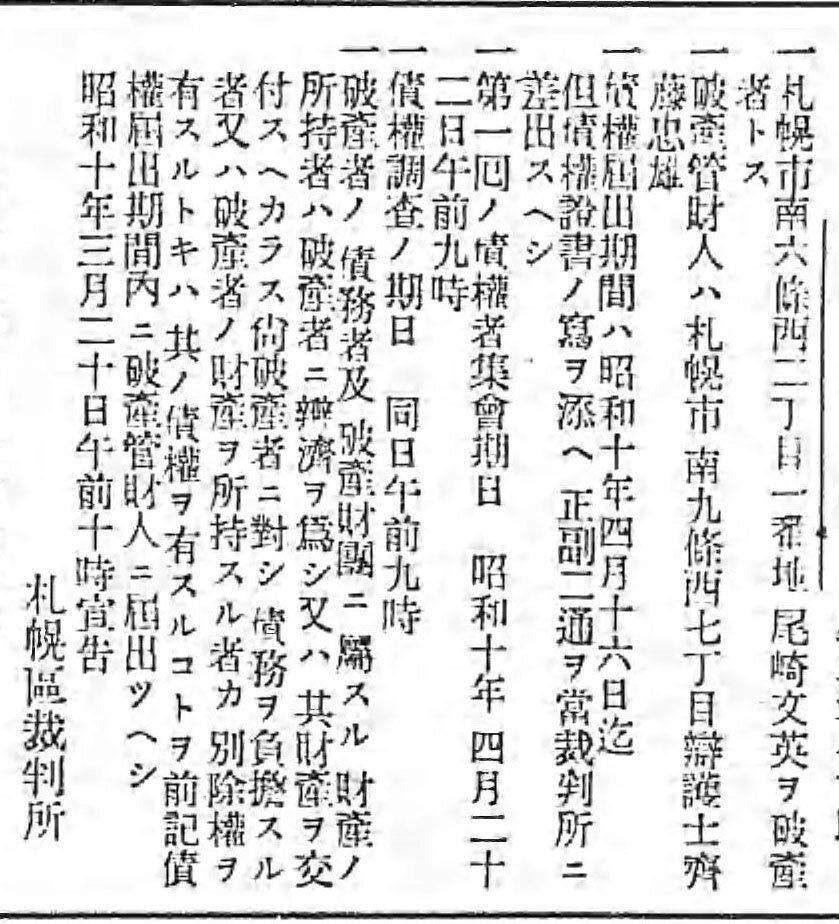 一 札幌市南六條西二丁目一番地 尾崎文英ヲ破產
者トス
一 破產管財人ハ札幌市南九條西七丁目辯護士齊
藤忠雄
一 債權屆出期間ハ昭和十年四月十六日迄
但債權證書ノ寫ヲ添ヘ正副二通ヲ當裁判所ニ
差出スヘシ
一 第一囘ノ債權者集會期日 昭和十年四月二十
二日午前九時
一 債權調査ノ期日 同日午前九時
一 破產者ノ債務者及破產財團ニ屬スル財產ノ
所持者ハ破產者ニ辨濟ヲ爲シ又ハ其財產ヲ交
付スヘカラス尙破產者ニ對シ債務ヲ負擔スル
者又ハ破產者ノ財產ヲ所持スル者カ別除權ヲ
有スルトキハ其ノ債權ヲ有スルコトヲ前記債
權屆出期間內ニ破產管財人ニ屆出ツヘシ
昭和十年三月二十日午前十時宣告
札幌區裁判所